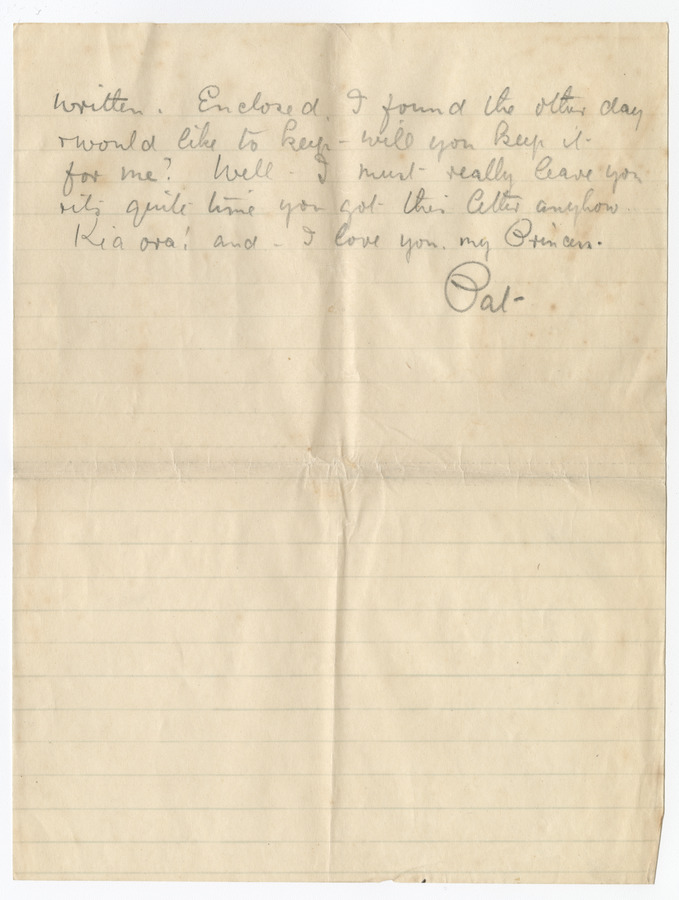 written. Enclosed I found the other day
& would like to keep - will you keep it
for me? Well - I must really leave you
& its quite time you got this letter anyhow.
Kia ora! and - I love you. my Princess.
Pat -